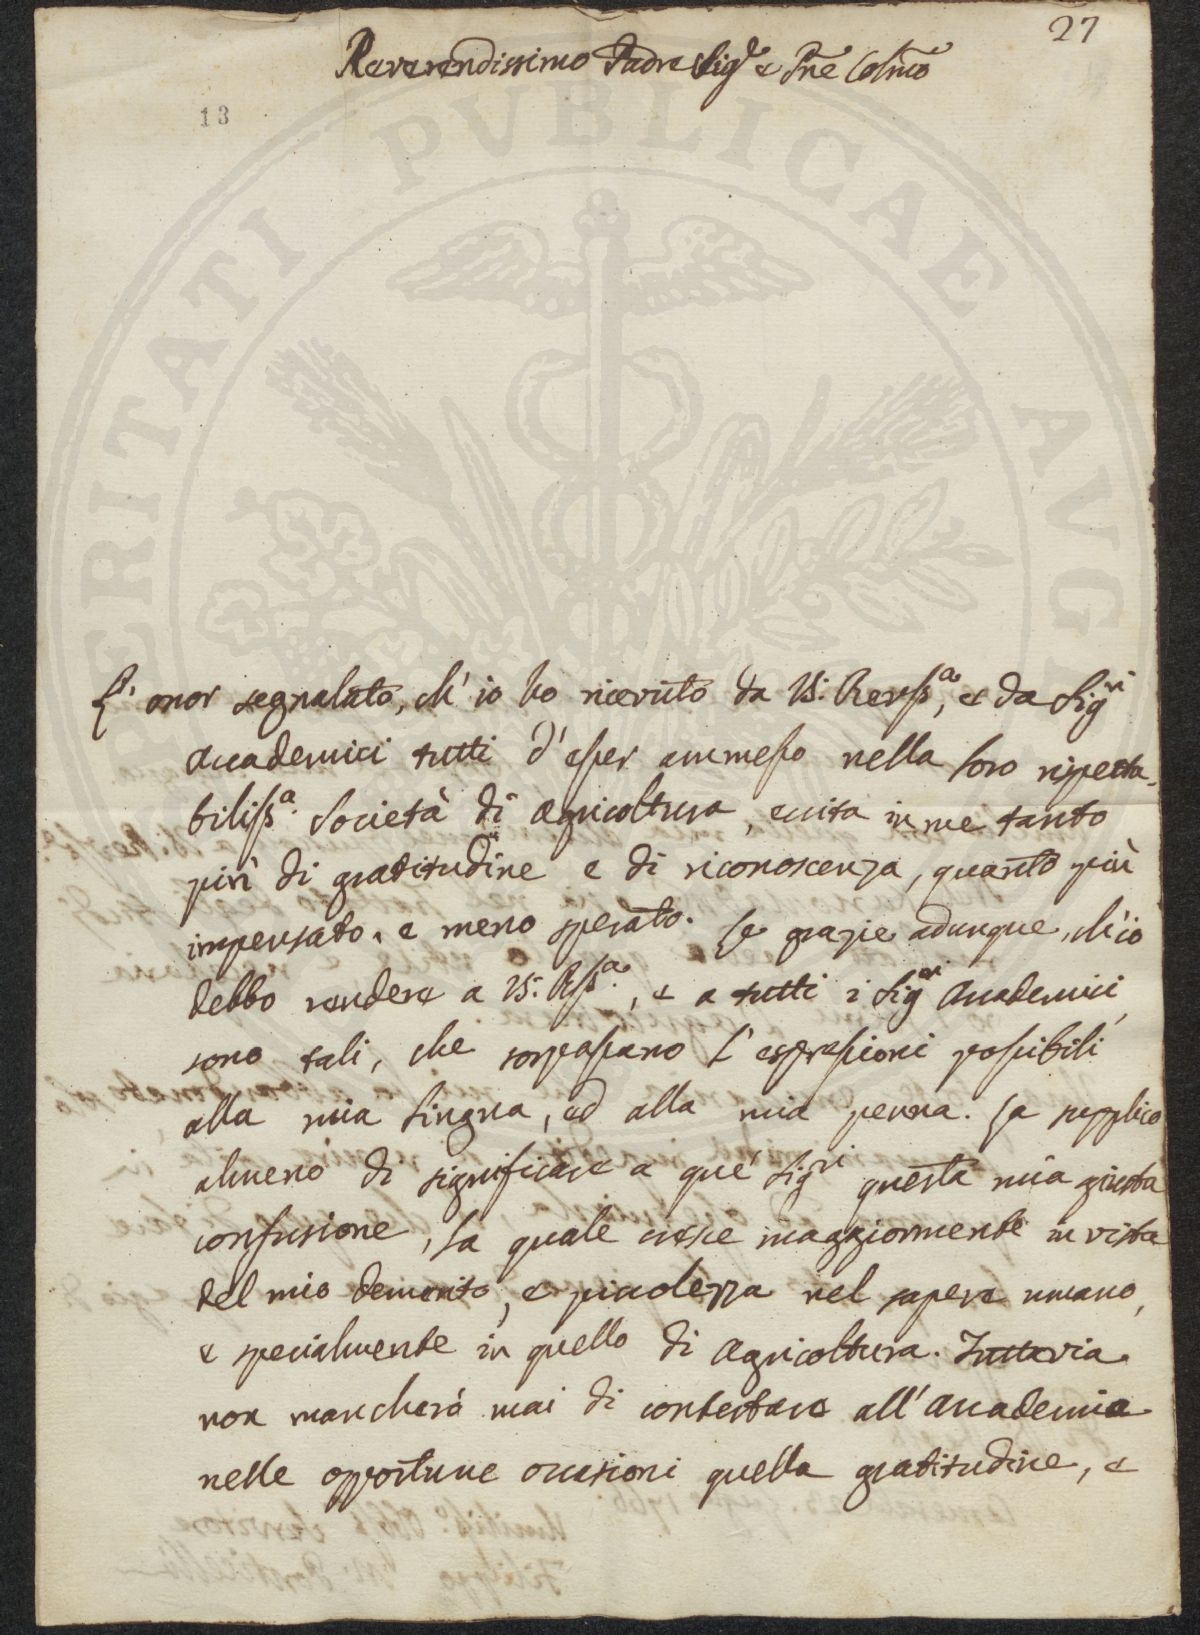 27
Reverendissimo Padre Sig.r e Pñe Colmo
13
PROSPERITATI PUBLICAE AVGENDAE
L' onor segnalato, ch' io ho ricevuto da VS: Revss.a, e da Sig.ri
Accademici tutti d' esser ammesso nella loro rispetta-
biliss.a Società di Agricoltura, eccita in me tanto
più di gratitudine e di riconoscenza, quanto più
impensato, e meno sperato. Le grazie adunque, ch' io
debbo rendere a VS: Rss.a, e a tutti i Sig.ri Accademici,
sono tali, che sorpassano l' espressioni possibili
alla mia lingua, ed alla mia penna. La supplico
almeno di significare a que' Sig.ri questa mia giusta
confusione, la quale cresce maggiormente in vista
del mio demerito, e picolezza nel sapere umano,
e specialmente in quello di Agricoltura. Tuttavia
non mancherò mai di contestare all' Accademia
nelle opportune occasioni quella gratitudine, e